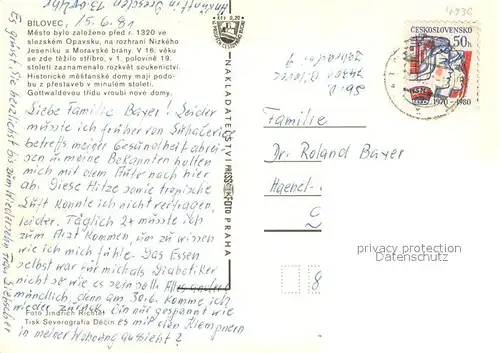 BÍLOVEC, 15.6.81
Město bylo založeno před r. 1320 ve
slezském Opavsku, na rozhraní Nízkého
Jeseníku a Moravské brány. V 16. věku
se zde těžilo stříbro, v 1. polovině 19.
století zaznamenalo rozkvět soukenictví.
Historické měšťanské domy mají podo-
bu z přestaveb v minulém století.
Gottwaldovou třídu vroubí nové domy.
Liebe Familie Bayer! Leider
müsste ich früher von
betreffs meiner Gesundheit abrei-
sen u meine Bekannten holten
mich mit dem Auto nach hier
ab. Diese Hitze sowie tropische
Luft konnte ich nicht vertragen,
leider. Täglich 2x müsste ich
zum Arzt kommen, um zu wissen
wie ich mich fühle. Das Essen
selbst war für mich als Diabetiker
nicht so wie es sein soll. Alles andere
mündlich, denn am 30.6. komme ich
wieder zurück. Bin nur gespannt wie
es mit den Klempnern
in meiner Wohnung aussieht?
Foto Jindřich Richter
Tisk Severografia Děčín
Es grüsst Sie herzlichst bis zum Wiedersehn Frau
NAKLADATELSTVÍ PRESSFOTO PRAHA
Kčs 0,20
ČESKOSLOVENSKO
50h
1970-1980
Familie
Dr. Roland Bayer
8
privacy protection
Datenschutz